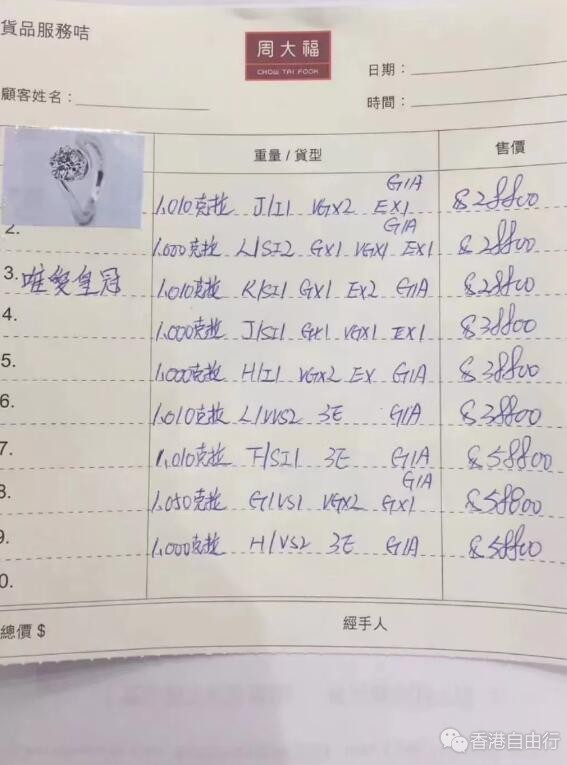 貨品服務咭
周大福
CHOW TAI FOOK
日期：
顧客姓名：
時間：
重量 / 貨型
售價
1.010克拉 J/I1 VGX2 EX1 GIA $28800
2. 1.000克拉 L/SI2 GX1 VGX1 EX1 GIA $28800
3. 唯愛皇冠 1.010克拉 K/SI1 GX1 EX2 GIA $28800
4. 1.000克拉 J/SI1 GX1 VGX1 EX1 $38800
5. 1.000克拉 H/I1 VGX2 EX GIA $38800
6. 1.010克拉 L/VVS2 3E GIA $38800
7. 1.010克拉 F/SI1 3E GIA $58800
8. 1.050克拉 G/VS1 VGX2 GX1 GIA $58800
9. 1.000克拉 H/VS2 3E GIA $58800
0.
總價 $
經手人
香港自由行